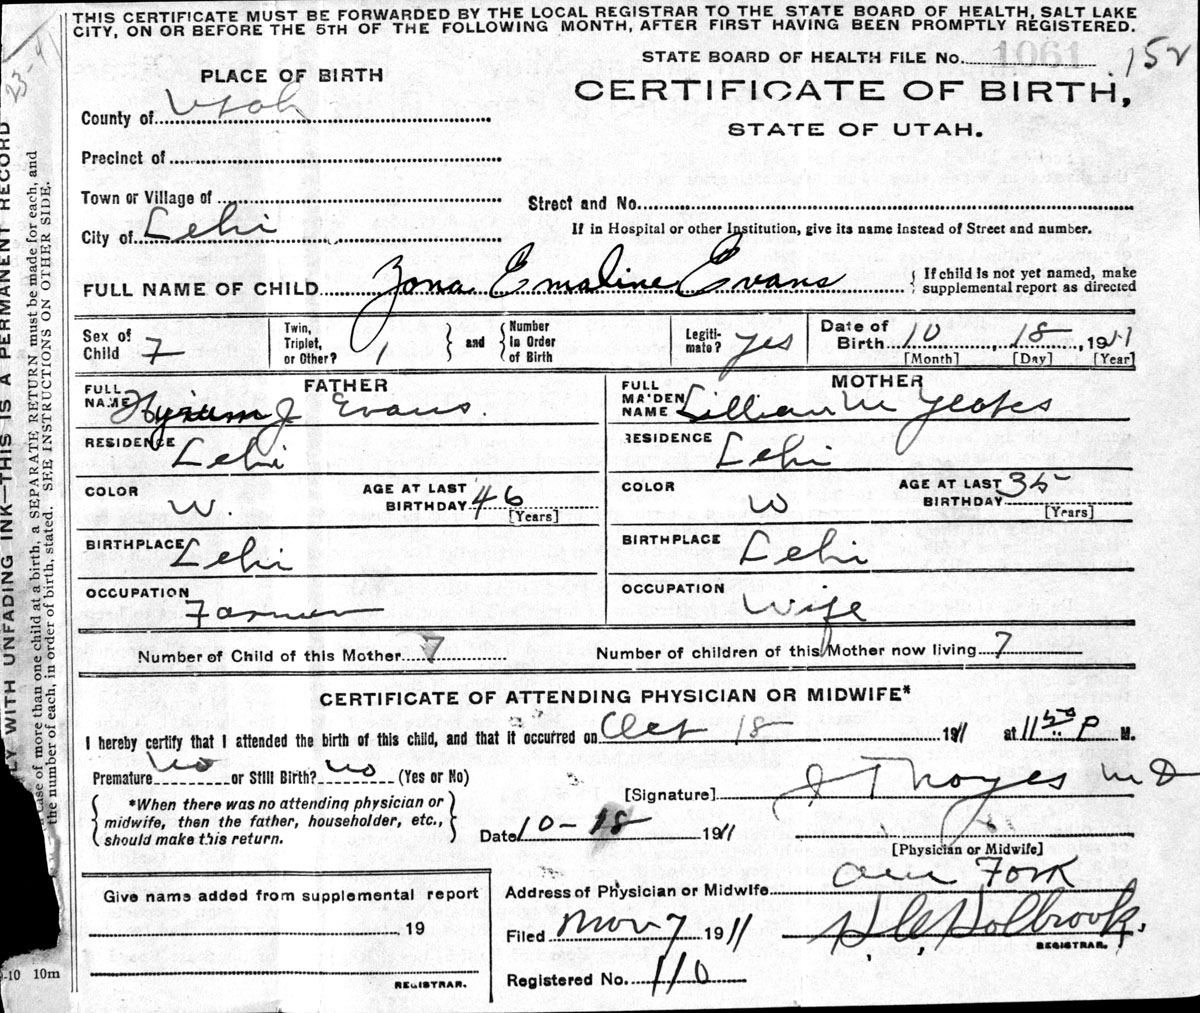 THIS CERTIFICATE MUST BE FORWARDED BY THE LOCAL REGISTRAR TO THE STATE BOARD OF HEALTH, SALT LAKE
CITY, ON OR BEFORE THE 5TH OF THE FOLLOWING MONTH, AFTER FIRST HAVING BEEN PROMPTLY REGISTERED.
STATE BOARD OF HEALTH FILE No. 1061 152
PLACE OF BIRTH
CERTIFICATE OF BIRTH,
STATE OF UTAH.
County of Utah
Precinct of
Town or Village of
Street and No.
City of Lehi
If in Hospital or other Institution, give its name instead of Street and number.
FULL NAME OF CHILD Zona Emaline Evans { If child is not yet named, make
supplemental report as directed
Sex of Child 7
Twin, Triplet, or Other? 1 } and { Number in Order of Birth
Legitimate? yes
Date of Birth 10 18, 1911
[Month] [Day] [Year]
FATHER
FULL NAME Hyrum J Evans.
MOTHER
FULL MAIDEN NAME Lillian M Yeates
RESIDENCE Lehi
RESIDENCE Lehi
COLOR W. AGE AT LAST BIRTHDAY 46 [Years]
COLOR W AGE AT LAST BIRTHDAY 35 [Years]
BIRTHPLACE Lehi
BIRTHPLACE Lehi
OCCUPATION Farmer
OCCUPATION Wife
Number of Child of this Mother 7
Number of children of this Mother now living 7
CERTIFICATE OF ATTENDING PHYSICIAN OR MIDWIFE*
I hereby certify that I attended the birth of this child, and that it occurred on Oct 18 1911 at 11 50 P M.
Premature no or Still Birth? no (Yes or No)
*When there was no attending physician or
midwife, then the father, householder, etc.,
should make this return.
[Signature] J F Noyes M D
Date 10-18 1911
[Physician or Midwife]
Address of Physician or Midwife Am Fork
Give name added from supplemental report
19
REGISTRAR.
Filed Nov 7 1911
Holbrook,
REGISTRAR.
Registered No. 110
-10 10m
LY WITH UNFADING INK—THIS IS A PERMANENT RECORD
case of more than one child at a birth, a SEPARATE RETURN must be made for each, and
the number of each, in order of birth, stated. SEE INSTRUCTIONS ON OTHER SIDE.